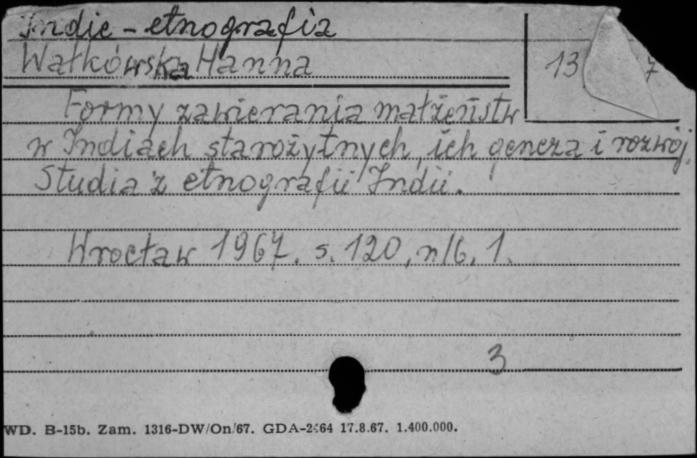 Indie - etnografia
Wałkówska Hanna
13 7
Formy zawierania małżeństw
w Indiach starożytnych, ich geneza i rozwój.
Studia z etnografii Indii.
Wrocław 1967. s. 120, nlb. 1.
3
WD. B-15b. Zam. 1316-DW/On/67. GDA-2464 17.8.67. 1.400.000.